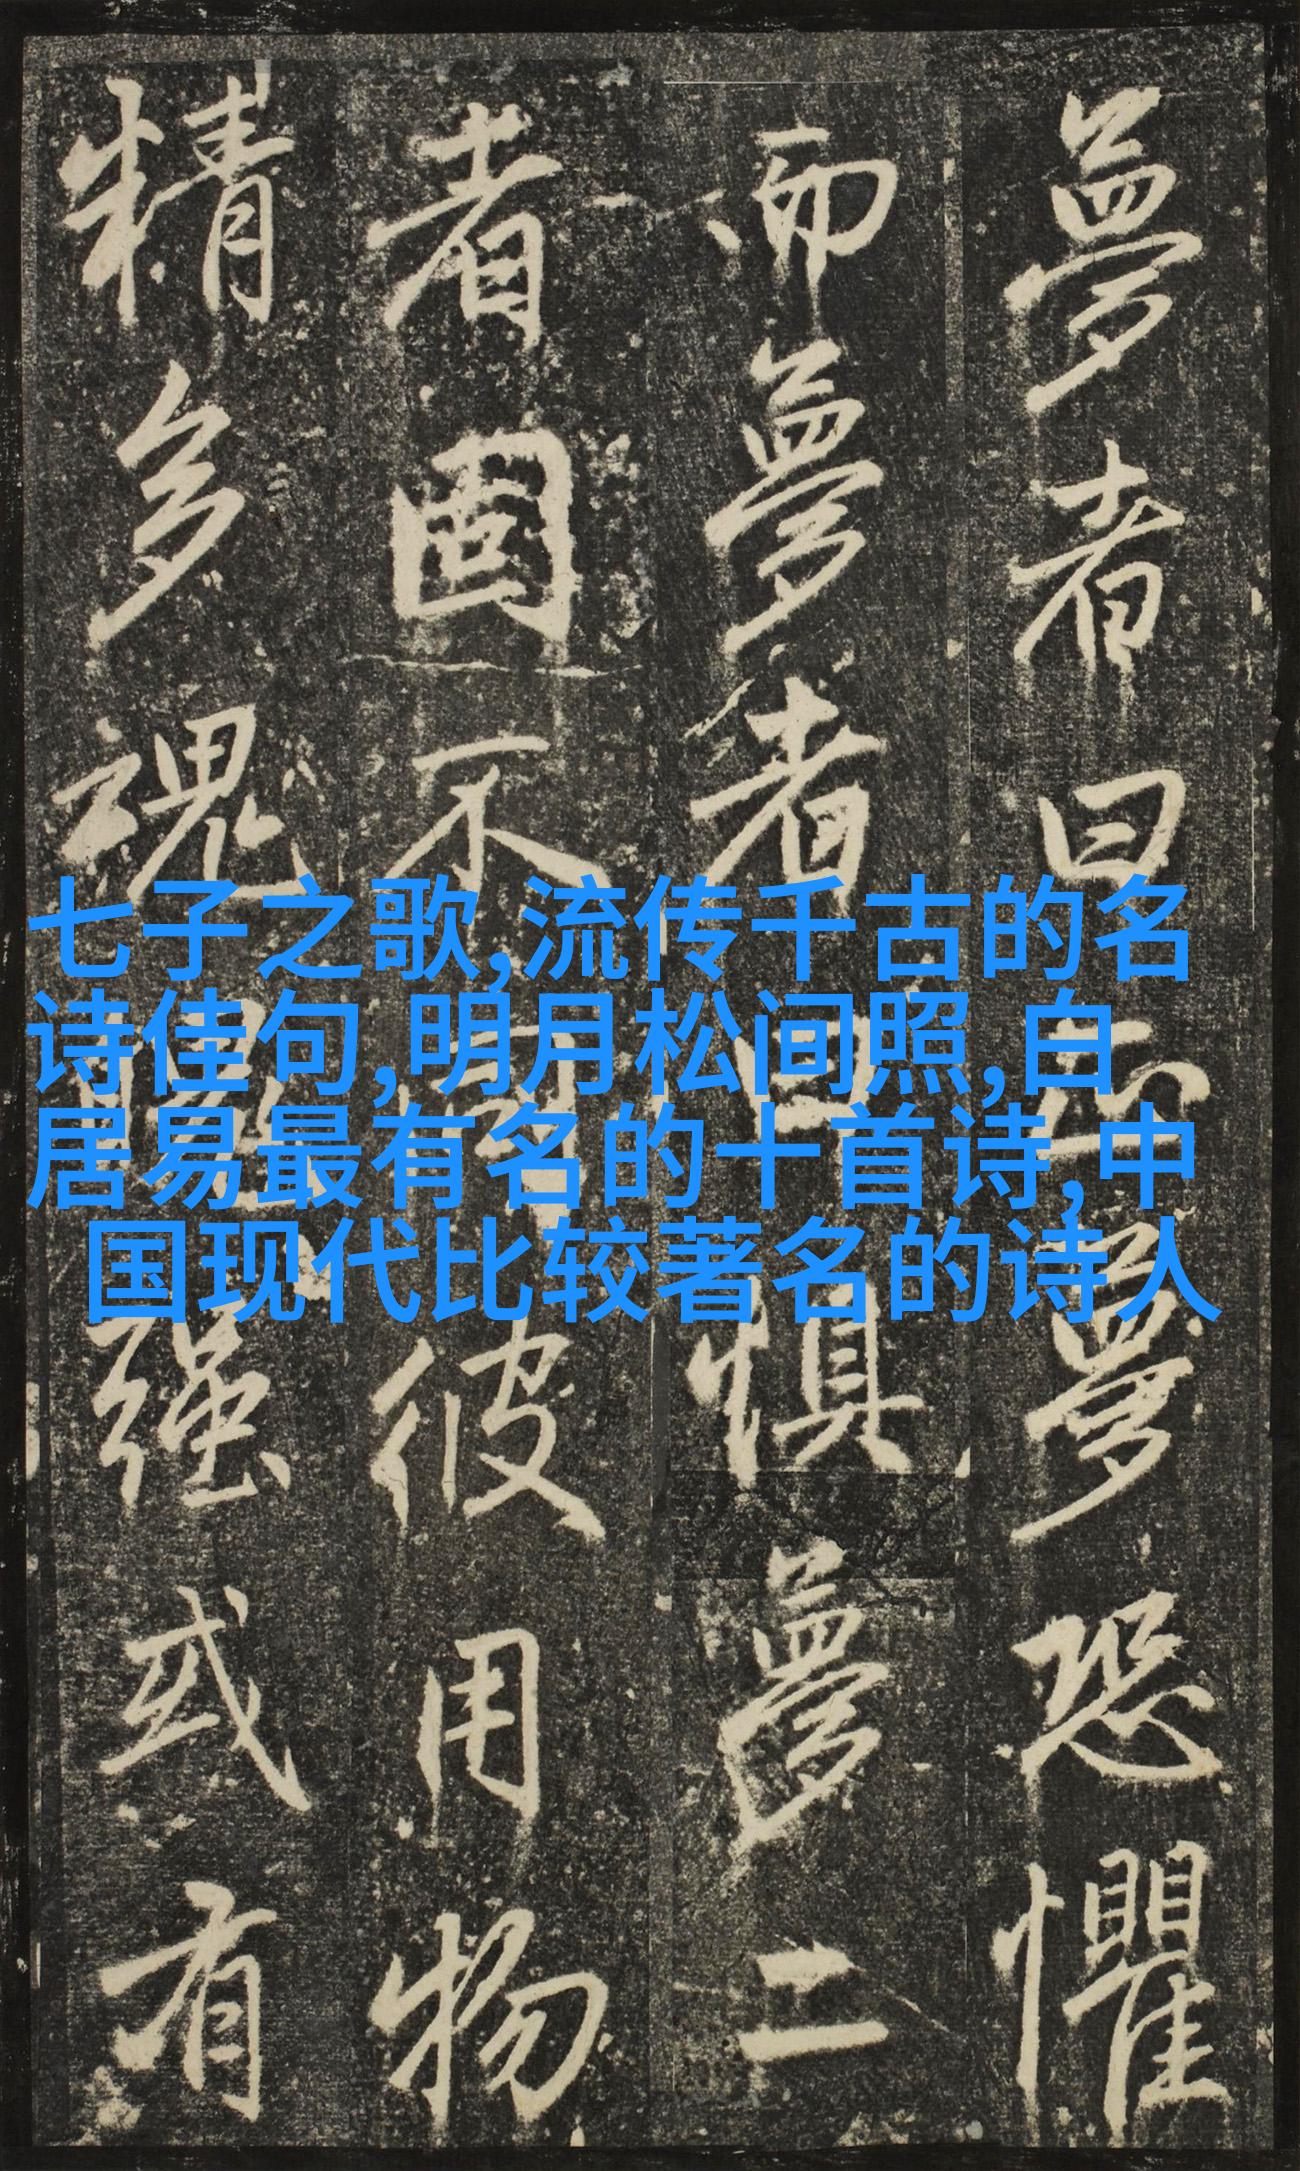 夢者曰夢恐懼
而夢者曰懼夢二
者固不彼用物
精多魂强或有
七子之歌,流传千古的名
诗佳句,明月松间照,白
居易最有名的十首诗,中
国现代比较著名的诗人